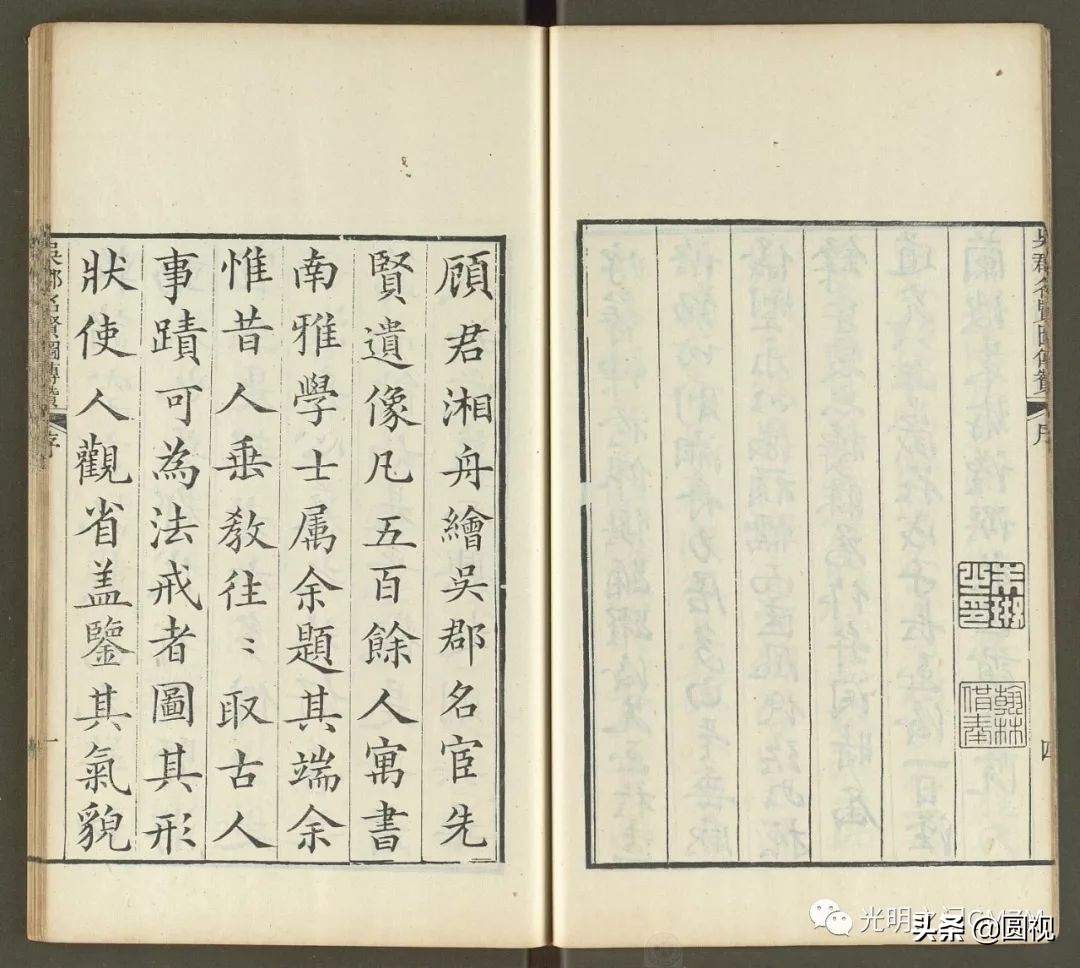 吳郡名賢圖傳贊
序
四
朱珔之印
翰林供奉
顧君湘舟繪吳郡名宦先
賢遺像凡五百餘人寓書
南雅學士属余題其端余
惟昔人垂教往〻取古人
事蹟可為法戒者圖其形
狀使人觀省盖鑒其氣貌
吳郡名賢圖傳贊
序
一
头条 @圆视